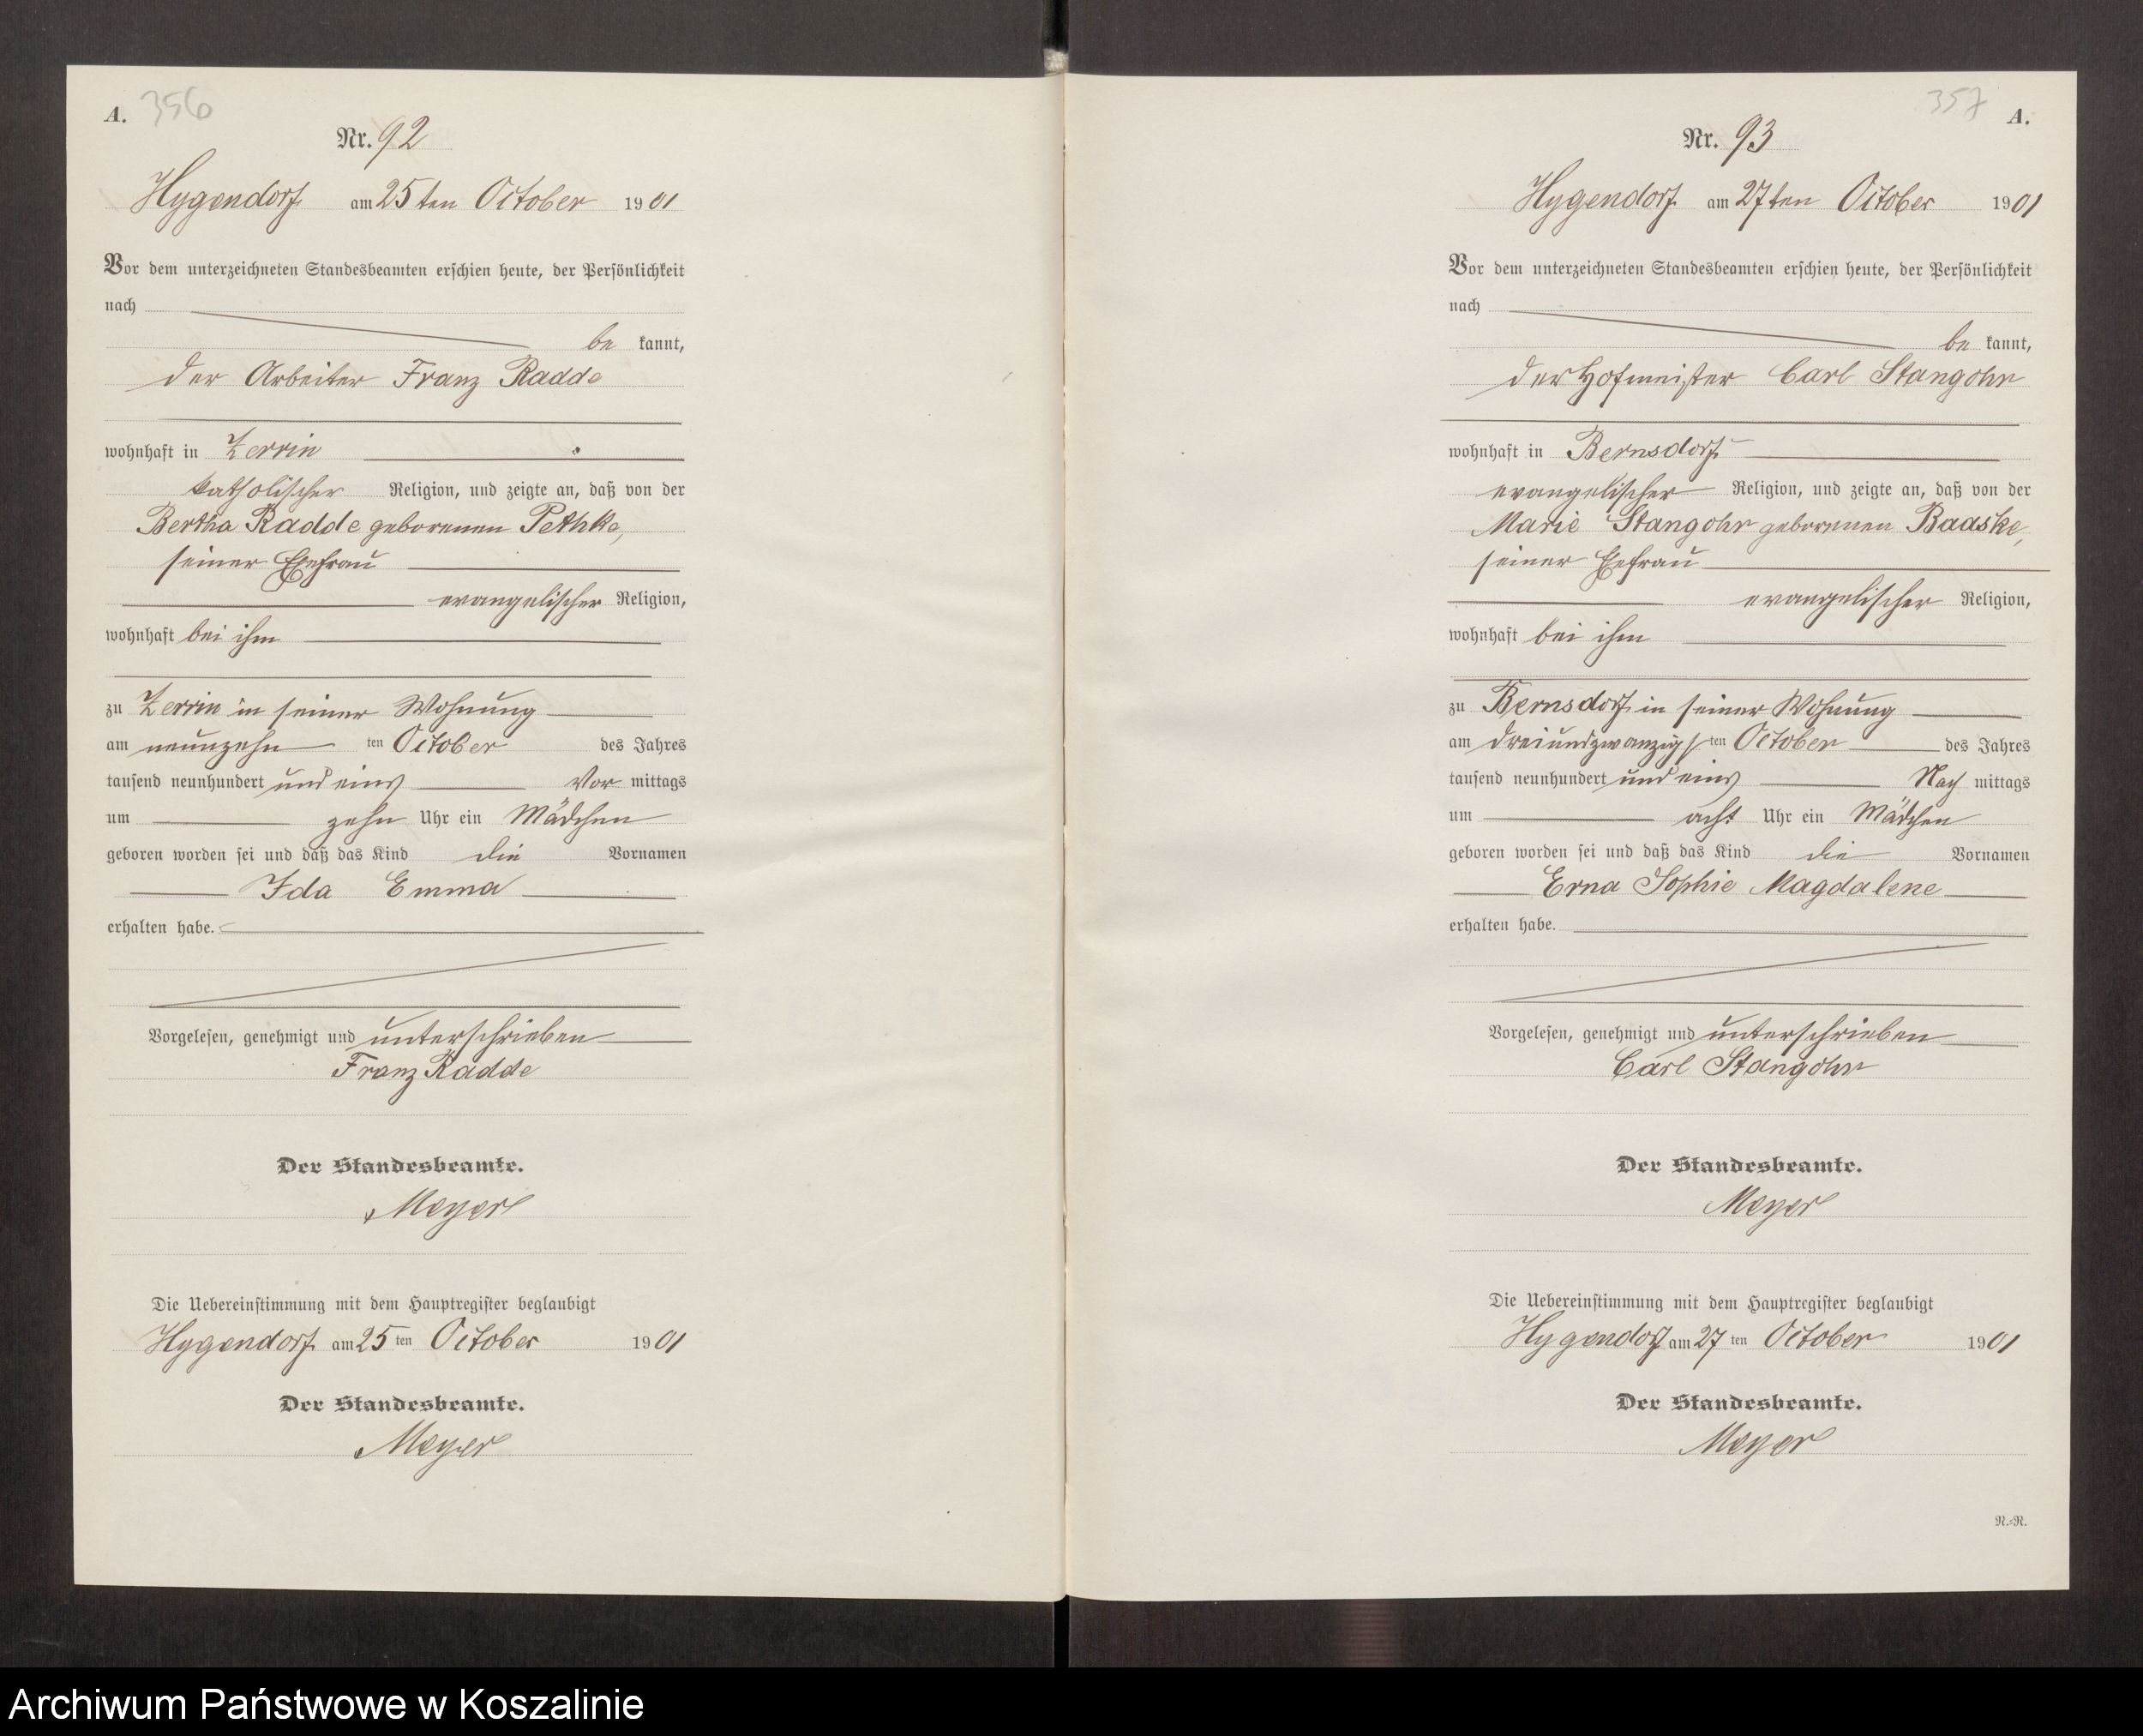 A. 356
Nr. 92
Hygendorf am 25ten October 1901
Vor dem unterzeichneten Standesbeamten erschien heute, der Persönlichkeit
nach
be kannt,
der Arbeiter Franz Radde
wohnhaft in Zerrin
katholischer Religion, und zeigte an, daß von der
Bertha Radde geborenen Pethke,
seiner Ehefrau
evangelischer Religion,
wohnhaft bei ihm
zu Zerrin in seiner Wohnung
am neunzehn ten October des Jahres
tausend neunhundert und eins Vor mittags
um zehn Uhr ein Mädchen
geboren worden sei und daß das Kind die Vornamen
Ida Emma
erhalten habe.
Vorgelesen, genehmigt und unterschrieben
Franz Radde
Der Standesbeamte.
Meyer
Die Uebereinstimmung mit dem Hauptregister beglaubigt
Hygendorf am 25 ten October 1901
Der Standesbeamte.
Meyer
357 A.
Nr. 93
Hygendorf am 27ten October 1901
Vor dem unterzeichneten Standesbeamten erschien heute, der Persönlichkeit
nach
be kannt,
der Hofmeister Carl Stangohr
wohnhaft in Bernsdorf
evangelischer Religion, und zeigte an, daß von der
Marie Stangohr geborenen Baaske,
seiner Ehefrau
evangelischer Religion,
wohnhaft bei ihm
zu Bernsdorf in seiner Wohnung
am dreiundzwanzigs ten October des Jahres
tausend neunhundert und eins Nach mittags
um acht Uhr ein Mädchen
geboren worden sei und daß das Kind die Vornamen
Erna Sophie Magdalene
erhalten habe.
Vorgelesen, genehmigt und unterschrieben
Carl Stangohr
Der Standesbeamte.
Meyer
Die Uebereinstimmung mit dem Hauptregister beglaubigt
Hygendorf am 27 ten October 1901
Der Standesbeamte.
Meyer
N.-R.
Archiwum Państwowe w Koszalinie